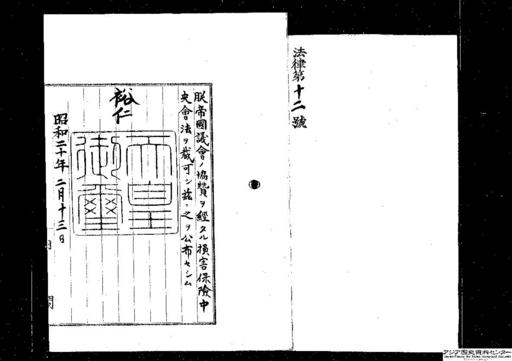 法律第十二號
朕帝國議會ノ協賛ヲ經タル損害保險中
央會法ヲ裁可シ茲ニ之ヲ公布セシム
裕仁
天皇御璽
昭和二十年二月十三日
アジア歴史資料センター